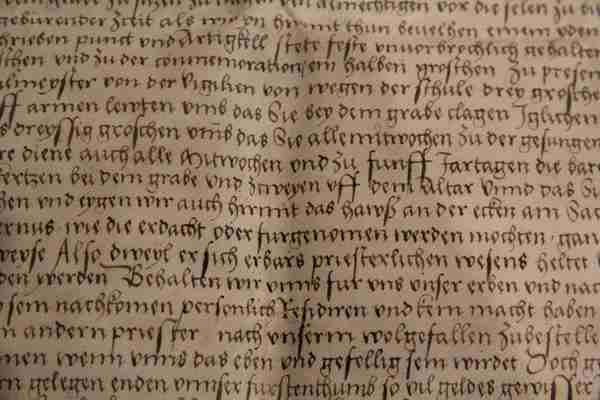 zu allmechtigen vor die selen zu bit
gebürender Zceit als wir yn hirmit thun beuelhen einem yden
hrieben punct vnd Artigkell stete feste vnuorbrochlich gehalten
schen vnd zu der commemoration ein halben groschen Zu presen
almeyster von der Vigilien von wegen der schule drey grosche
ff armen lewten vmb das Sie bey dem grabe clagen Iglichen
s dreyssig groschen vmb das Sie alle mitwochen Zu der gesungen
re diene auch alle Mitwochen vnd Zu funff Jartagen die bare
kertzen bei dem grabe vnd zcweyen vff dem Altar Vnnd das Si
hen vnd eygen wir auch hirmit das hawß an der ecken am Sa
ernus wie die erdacht oder furgenomen werden mochten gan
weyse Also dweyl er sich erbars priesterlichen wesens heltet
den werden Behalten wir vnns fur vns vnser erben vnd nac
sein nachkomen personlich Residiren vnd kein macht haben
n andern priester nach vnserm wolgefallen Zubestelle
men wenn vnns das eben vnd gefellig sein wirdet Doch ge
rn gelegen enden vnnser furstenthumb so vil geldes gewisser